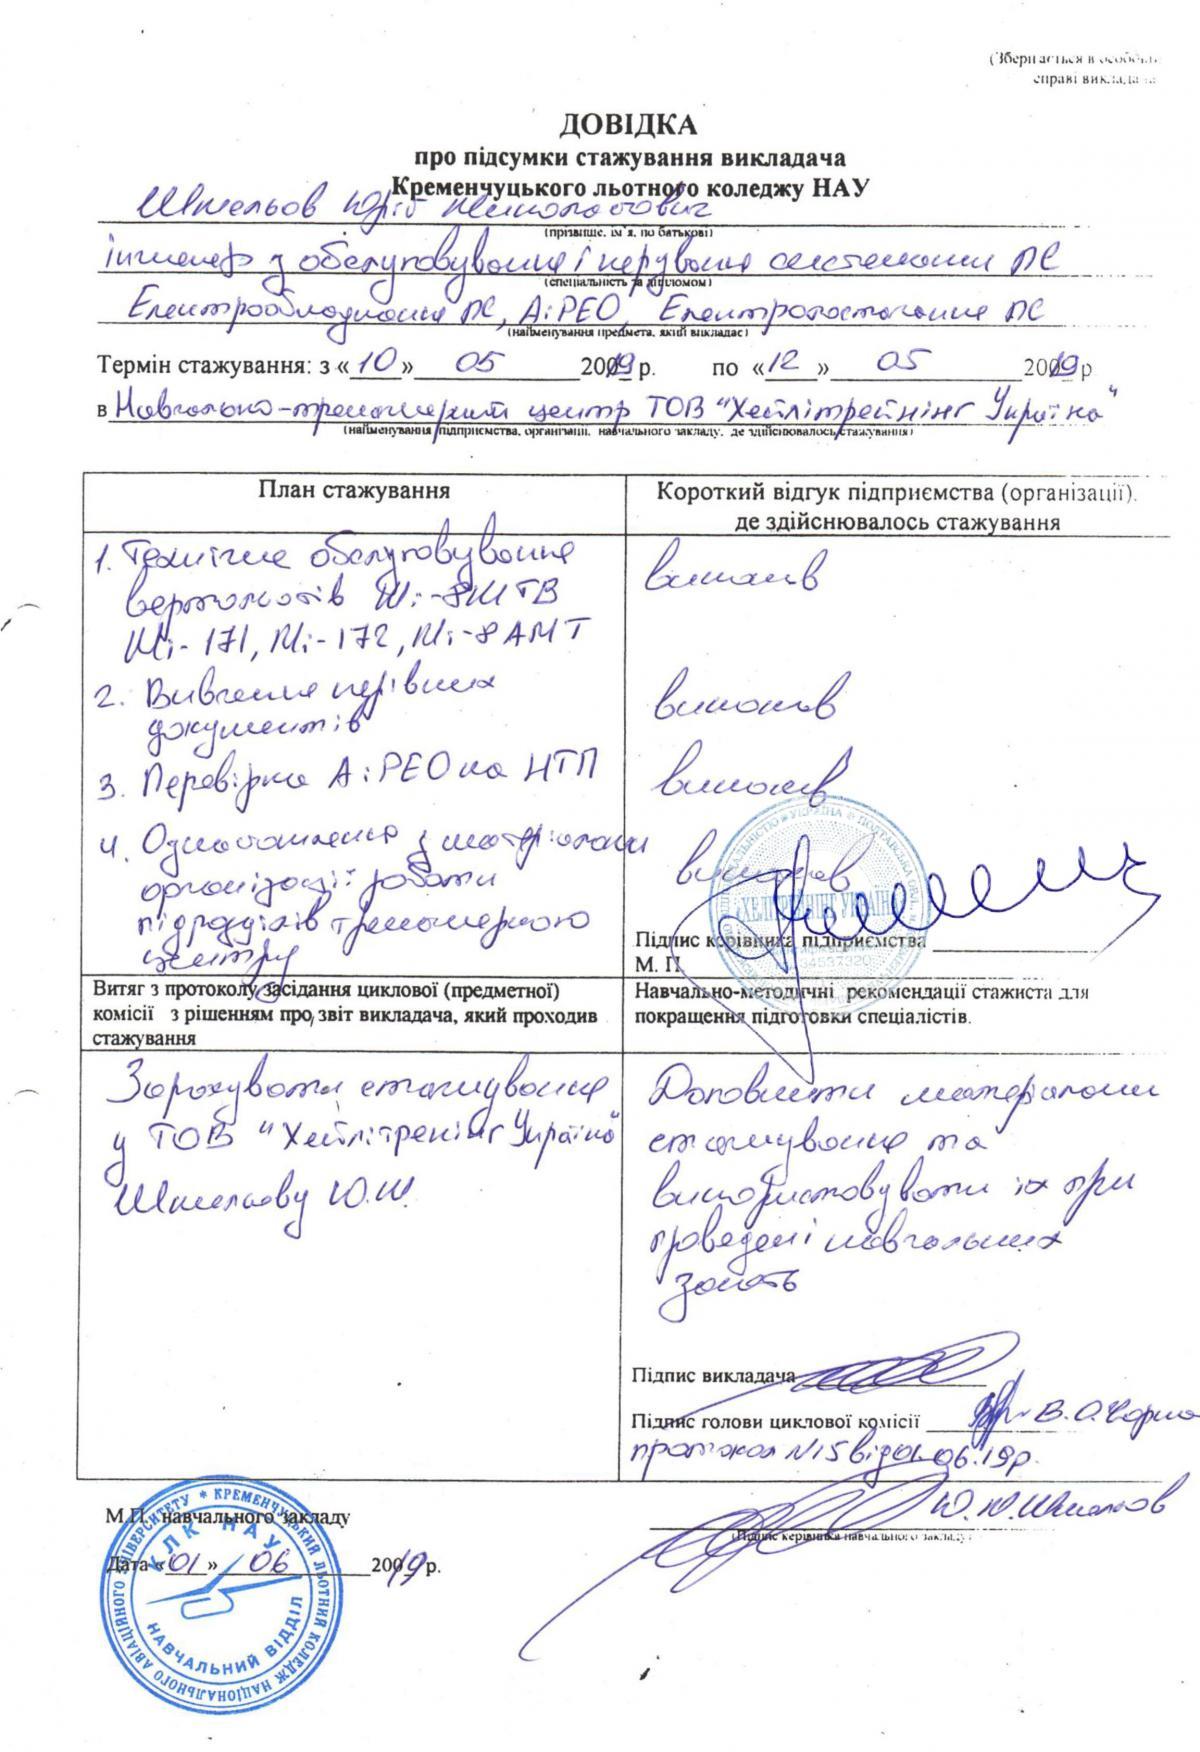 (Зберігається в особовій
справі викладача
ДОВІДКА
про підсумки стажування викладача
Кременчуцького льотного коледжу НАУ
Шмельов Юрій Миколайович
(прізвище, ім'я, по батькові)
інженер з обслуговування і керування системами ПС
(спеціальність за дипломом)
Електрообладнання ПС, АіРЕО, Електропостачання ПС
(найменування предмета, який викладає)
Термін стажування: з «10» 05 2019 р. по «12» 05 2019 р
в Навчально-тренажерний центр ТОВ "Хейлітрейнінг Україна"
(найменування підприємства, організації, навчального закладу, де здійснювалось стажування)
План стажування
Короткий відгук підприємства (організації),
де здійснювалось стажування
1. Технічне обслуговування
вертольотів Мі-8МТВ
Мі-171, Мі-172, Мі-8АМТ
виконав
2. Вивчення керівних
документів
виконав
3. Перевірка АіРЕО на НТП
виконав
4. Ознайомлення з матеріалами
організації роботи
підрозділів тренажерного
центру
виконав
ХЕЛІТРЕЙНІНГ УКРАЇНА
34537320
Підпис керівника підприємства
М. П.
Витяг з протоколу засідання циклової (предметної)
комісії з рішенням про звіт викладача, який проходив
стажування
Навчально-методичні рекомендації стажиста для
покращення підготовки спеціалістів.
Зарахувати стажування
у ТОВ "Хейлітренінг Україна"
Шмельову Ю.М.
Доповнити матеріалами
стажування та
використовувати їх при
проведені навчальних
занять
Підпис викладача
Підпис голови циклової комісії В.О.
протокол №15 від 01.06.19р.
М.П. навчального закладу
Ю.М.Шмельов
(Підпис керівника навчального закладу)
Дата «01» 06 2019 р.
КРЕМЕНЧУЦЬКИЙ ЛЬОТНИЙ КОЛЕДЖ НАЦІОНАЛЬНОГО АВІАЦІЙНОГО УНІВЕРСИТЕТУ
КЛК НАУ
НАВЧАЛЬНИЙ ВІДДІЛ